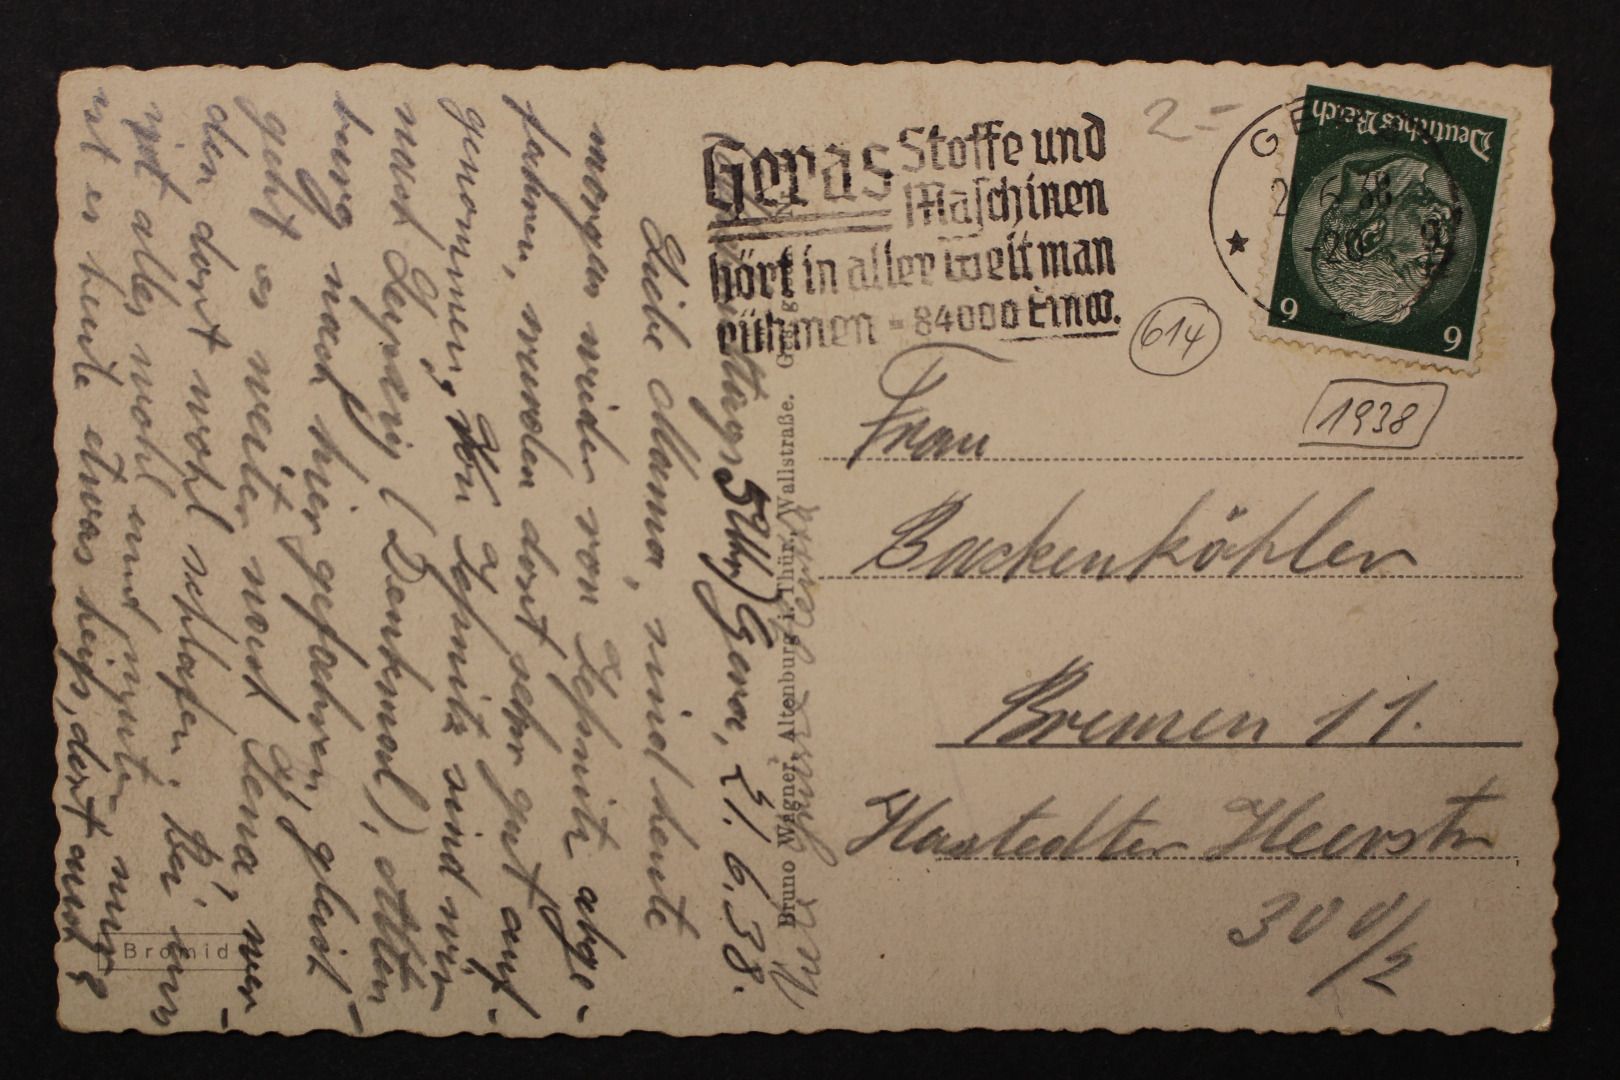 Geras Stoffe und
Maschinen
hört in aller Welt man
rühmen - 84000 Einw.
2=
GE
21.6.38
-20
Deutsches Reich
9 9
614
1938
Frau
Backenköhler
Bremen 11.
Hastedter Heerstr
30
Bruno Wagner, Altenburg i. Thür., Wallstraße.
Bromid
5 Uhr) Gera, 21.6.38.
Liebe Mama, sind heute
morgen wieder von abge-
fahren, wurden dort sehr gut auf-
genommen, von sind wir
nach Leipzig (Denkmal),
burg nach hier gefahren, gleich
geht es weiter nach Jena, wer-
den dort wohl schlafen. Bei uns
ist alles wohl und munter, nur
ist es heute etwas heiß, dort auch?
Viele Grüße